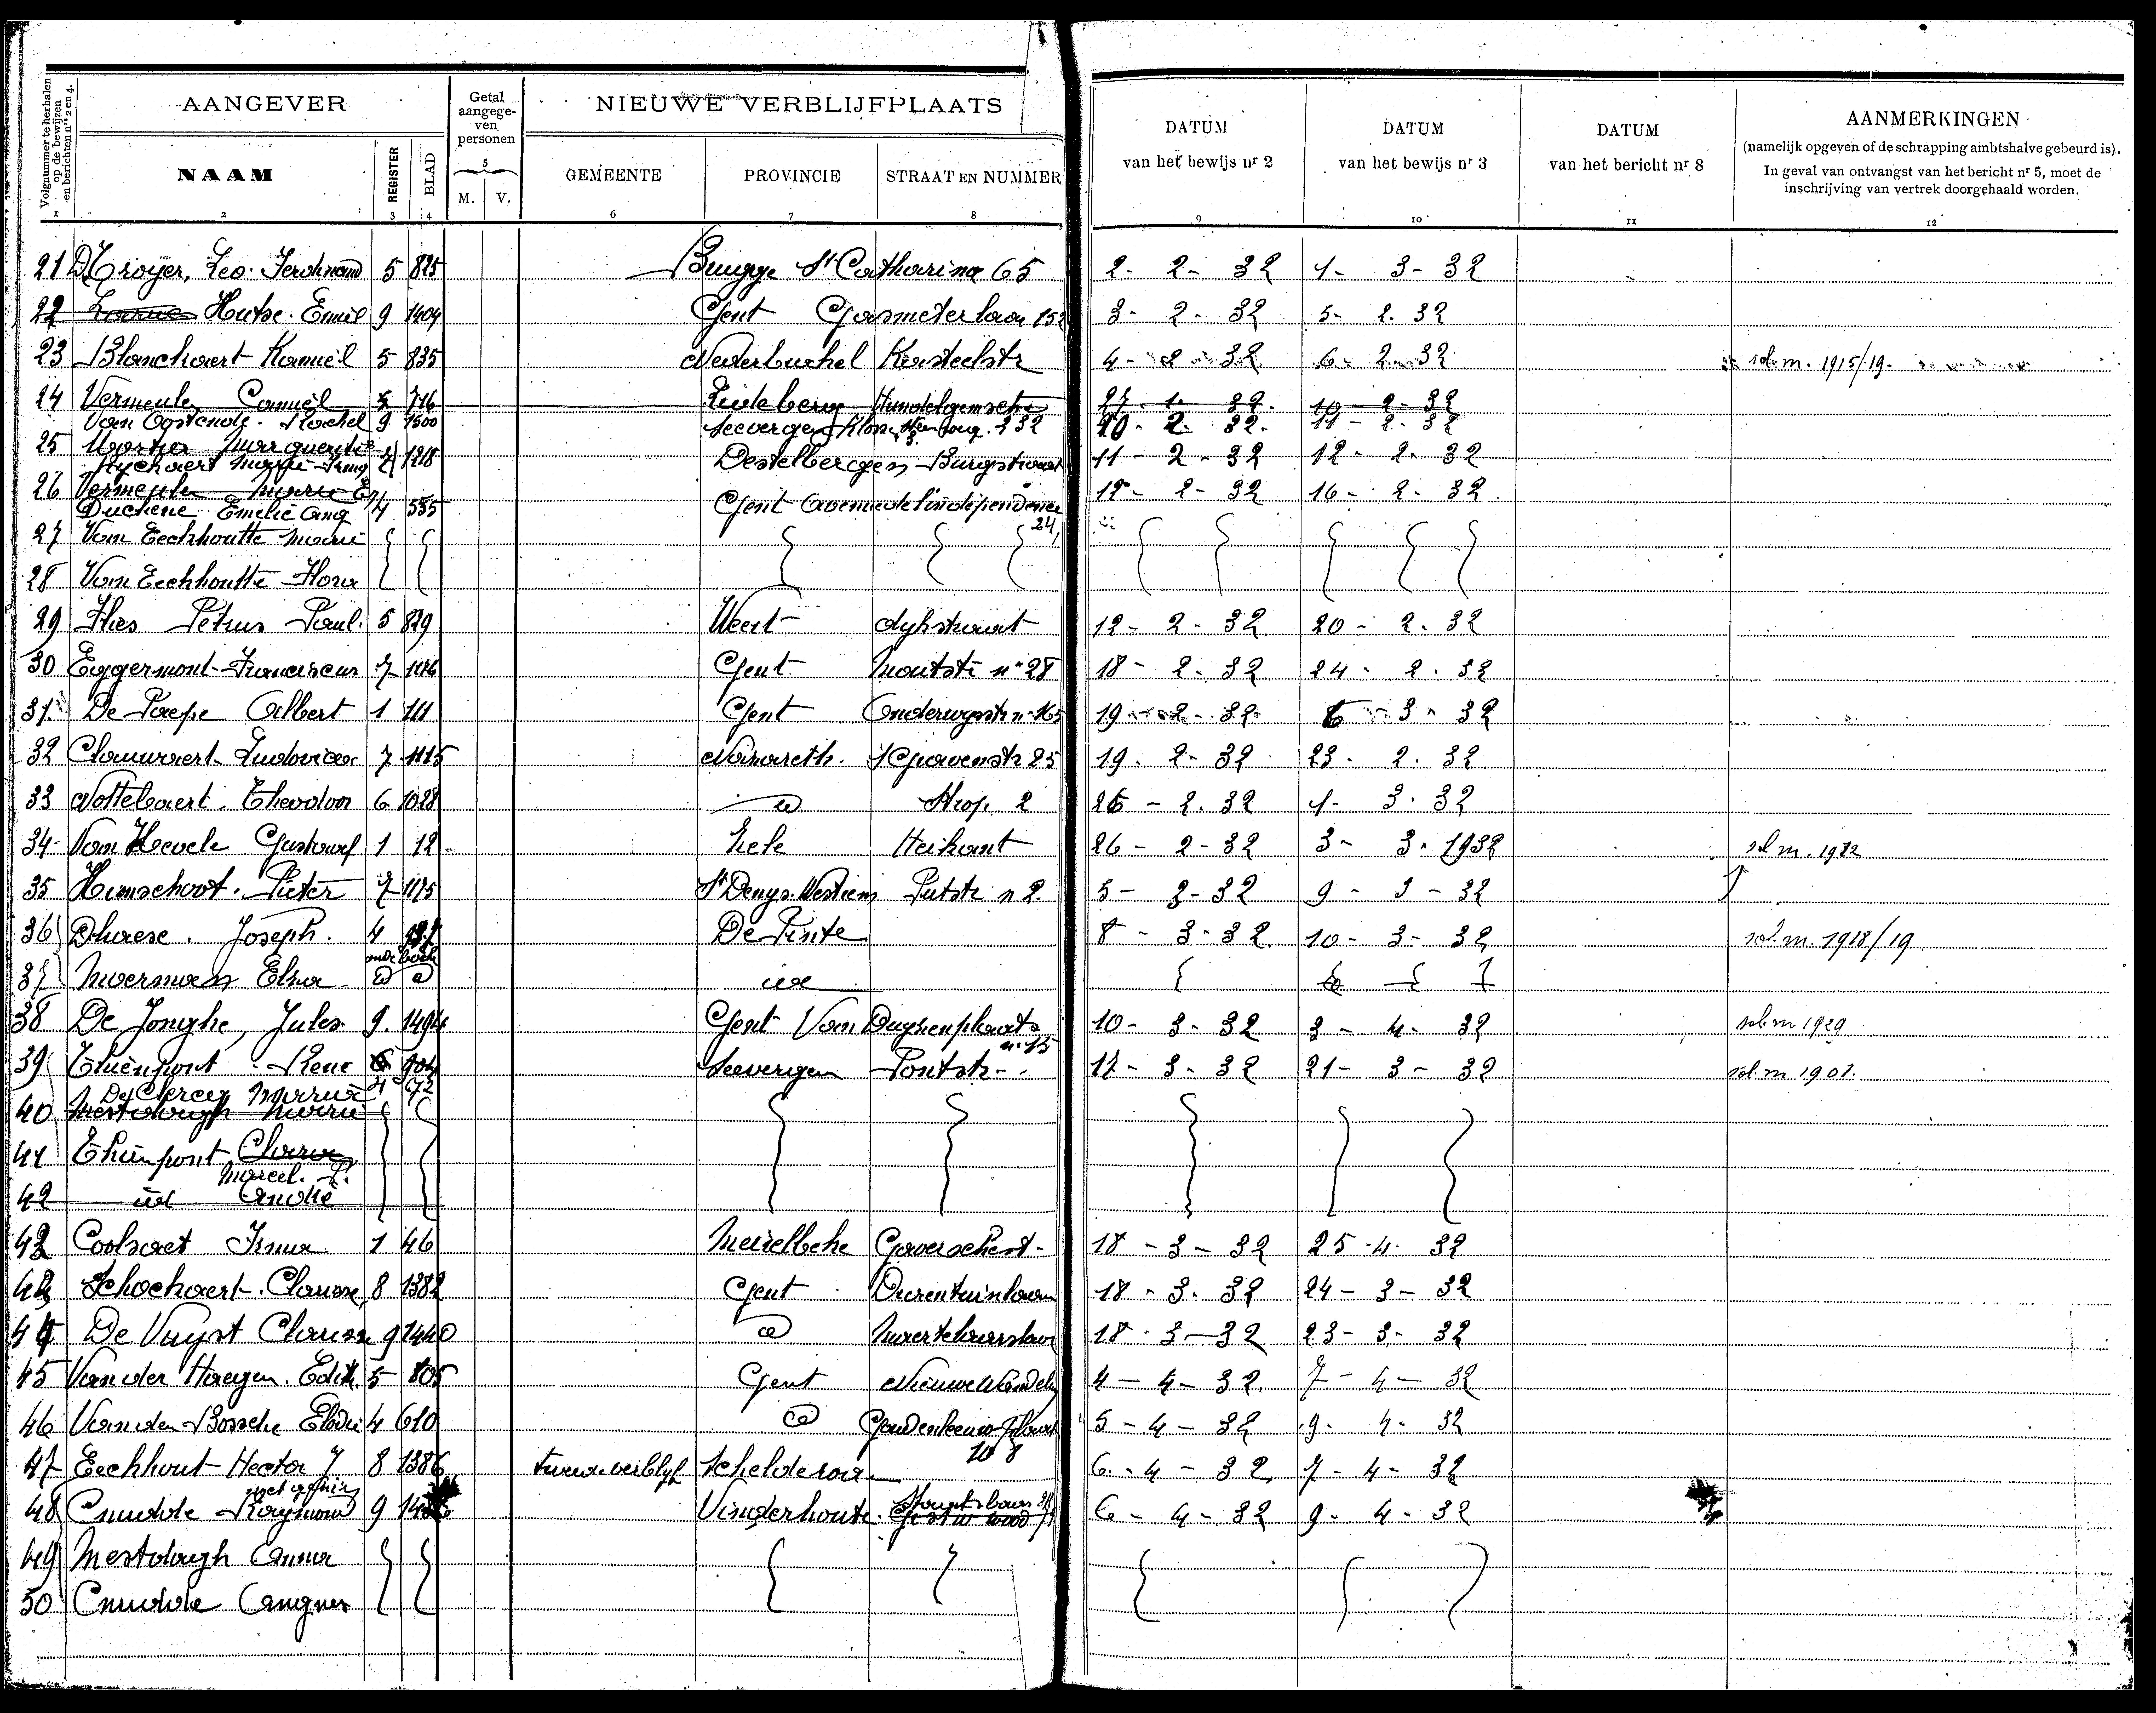 Volgnummer te herhalen op de bewijzen en berichten nrs 2 en 4.
AANGEVER
Getal aangege- ven personen
NIEUWE VERBLIJFPLAATS
DATUM van het bewijs nr 2
DATUM van het bewijs nr 3
DATUM van het bericht nr 8
AANMERKINGEN
(namelijk opgeven of de schrapping ambtshalve gebeurd is).
In geval van ontvangst van het bericht nr 5, moet de
inschrijving van vertrek doorgehaald worden.
NAAM REGISTER BLAD M. V. GEMEENTE PROVINCIE STRAAT EN NUMMER
1 2 3 4 5 6 7 8 9 10 11 12
21 De Troyer, Leo Ferdinand 5 825 Brugge St Catharina 65 2- 2- 32 1- 3- 32
22 Hutse Emiel 9 1404 Gent Gasmeterlaan 3- 2- 32 5- 2. 32
23 Blanckaert Kamiel 5 835 Nederbrakel Kasteelstr 4- 2- 32 6- 2- 32 sol. m. 1915/19.
24 Vermeulen Camiel 5 716 Ledeberg Hundelgemsche 27- 1- 32. 10- 2- 32
Van Oostende Rachel 9 1500 Seevergem 232 10- 2. 32. 11- 2. 32
25 Mortier Marguerite
Ryckaert Marie Irma 1218 Destelbergen Burgstraat 11- 2- 32 12- 2- 32
26 Vermeulen Marie
Duchene Emelie Aug 4 555 Gent Avenue de l'indépendance 24, 12- 2- 32 16- 2- 32
27 Van Eeckhoutte Marie
28 Van Eeckhoutte Flora
29 Ilies Petrus Paul. 5 829 Weert dijkstraat 12- 2- 32 20- 2. 32
30 Eggermont Franciscus 7 1116 Gent Moutstr n° 28 18- 2- 32 24- 2. 32
31. De Paepe Albert 1 111 Gent Onderwysstr n° 165 19- 2- 32- 6- 3- 32
32 Clauwaert Ludovica 7 1115 Nazareth. 's Gravenstr 25 19. 2- 32 23- 2. 32
33 Nottebaert Theodoor 6 1028 id Hosp. 2 26- 2. 32 1- 3. 32
34- Van Hevele Gustaaf 1 12 Zele Heikant 26- 2- 32 3- 3- 1932 sol m. 1922
35 Himschoot. Pieter 7 1175 St Denys Westrem Putstr n 2. 5- 3- 32 9- 3- 32
36 Dhaese. Joseph. 4 De Pinte 8- 3- 32. 10- 3- 32 sol. m. 1918/19
37 Moermans Elza id id id
38 De Jonghe, Jules 9. 1494 Gent Van Duysenplaats n° 15 10- 3- 32 3- 4- 32 sol m 1929
39 Thienpont René 6 904 Seevergem Pontstr- 17- 3- 32 21- 3- 32 sol. m 1901.
De Clercq Maria 4 672
40 Mestdagh Marie
41 Thienpont Clara
Marcel. P.
42 id André
42 Coolsaet Irma 1 46 Meirelbeke Gaversche st- 18- 3- 32 25- 4- 32
43 Schockaert. Clarisse 8 1382 Gent Dierentuinlaan 18- 3- 32 24- 3- 32
44 De Vuyst Clarisse 9 1440 id Maeterlincklaan 18- 3- 32 23- 3- 32
45 Van der Haegen. Edith. 5 805 Gent Nieuwe Wandeling 4- 4- 32. 7- 4- 32
46 Van den Bossche Elodie 4 610 id Goudenleeuw plaats 5- 4- 32 9- 4- 32
47 Eeckhout Hector J 8 1386 tweede verblijf Schelderode 6- 4- 32 7- 4- 32
met gezin
48 Cnudde Raymond 9 Vinderhoute. 6- 4- 32 9- 4- 32
49 Mestdagh Anna
50 Cnudde Angnes